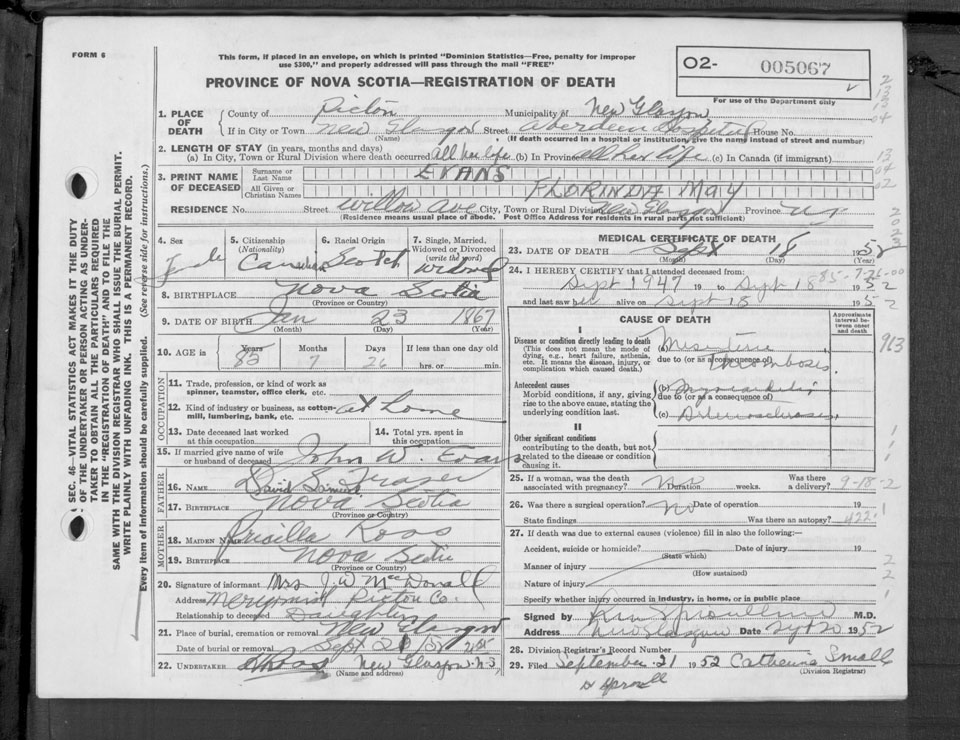 FORM 6
This form, if placed in an envelope, on which is printed "Dominion Statistics—Free, penalty for improper
use $300," and properly addressed will pass through the mail "FREE"
PROVINCE OF NOVA SCOTIA—REGISTRATION OF DEATH
O2- 005067
For use of the Department only
1. PLACE OF DEATH
County of Pictou Municipality of New Glasgow
If in City or Town New Glasgow Street Aberdeen Hospital House No.
(Name) (If death occurred in a hospital or institution, give the name instead of street and number)
2. LENGTH OF STAY (in years, months and days)
(a) In City, Town or Rural Division where death occurred all her life (b) In Province all her life (c) In Canada (if immigrant)
3. PRINT NAME OF DECEASED
Surname or Last Name EVANS
All Given or Christian Names FLORINDA MAY
RESIDENCE No. Street Willow Ave City, Town or Rural Division New Glasgow Province NS
(Residence means usual place of abode. Post Office Address for residents in rural parts not sufficient)
4. Sex Female
5. Citizenship (Nationality) Canadian
6. Racial Origin Scotch
7. Single, Married, Widowed or Divorced (write the word) Widowed
8. BIRTHPLACE Nova Scotia
(Province or Country)
9. DATE OF BIRTH Jan 23 1867
(Month) (Day) (Year)
10. AGE in Years 85 Months 7 Days 26 If less than one day old hrs. or min.
OCCUPATION
11. Trade, profession, or kind of work as spinner, teamster, office clerk, etc.
12. Kind of industry or business, as cotton-mill, lumbering, bank, etc. at home
13. Date deceased last worked at this occupation
14. Total yrs. spent in this occupation
15. If married give name of wife or husband of deceased John W. Evans
FATHER
16. NAME David Samuel Fraser
17. BIRTHPLACE Nova Scotia
(Province or Country)
MOTHER
18. MAIDEN NAME Prisilla Ross
19. BIRTHPLACE Nova Scotia
(Province or Country)
20. Signature of informant Mrs J. W. MacDonald
Address Merigomish Pictou Co.
Relationship to deceased Daughter
21. Place of burial, cremation or removal New Glasgow
Date of burial or removal Sept 21/52
22. UNDERTAKER New Glasgow N.S.
(Name and address)
MEDICAL CERTIFICATE OF DEATH
23. DATE OF DEATH Sept 18 1952
(Month) (Day) (Year)
24. I HEREBY CERTIFY that I attended deceased from:
Sept 1947 19 to Sept 18 1952
and last saw her alive on Sept 18 1952
885 7-26-00
CAUSE OF DEATH
Approximate interval between onset and death
I
Disease or condition directly leading to death
(This does not mean the mode of dying, e.g., heart failure, asthenia, etc. It means the disease, injury, or complication which caused death.)
(a) Mesenteric
due to (or as a consequence of) Thrombosis
Antecedent causes
Morbid conditions, if any, giving rise to the above cause, stating the underlying condition last.
(b) Myocarditis
due to (or as a consequence of)
(c) Arteriosclerosis
II
Other significant conditions
contributing to the death, but not related to the disease or condition causing it.
963
25. If a woman, was the death associated with pregnancy? No Duration weeks. Was there a delivery? 9-18-2
26. Was there a surgical operation? No Date of operation 19
State findings Was there an autopsy? 422.1
27. If death was due to external causes (violence) fill in also the following:—
Accident, suicide or homicide? Date of injury 19
(State which)
Manner of injury
(How sustained)
Nature of injury
Specify whether injury occurred in industry, in home, or in public place
Signed by M.D.
Address New Glasgow Date Sept 20 1952
28. Division Registrar's Record Number
29. Filed September 21 1952 Catherine Small
(Division Registrar)
SEC. 46—VITAL STATISTICS ACT MAKES IT THE DUTY
OF THE UNDERTAKER OR PERSON ACTING AS UNDER-
TAKER TO OBTAIN ALL THE PARTICULARS REQUIRED
IN THE "REGISTRATION OF DEATH" AND TO FILE THE
SAME WITH THE DIVISION REGISTRAR WHO SHALL ISSUE THE BURIAL PERMIT.
WRITE PLAINLY WITH UNFADING INK. THIS IS A PERMANENT RECORD.
Every item of information should be carefully supplied. (See reverse side for instructions.)